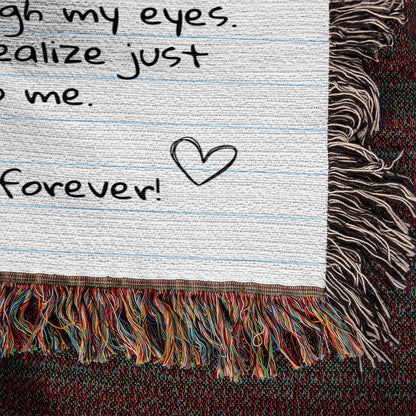 my eyes.
realize just
me.
forever!